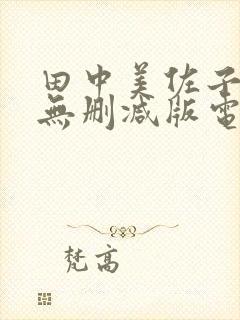 田中美佐子
無刪减版電
梵高